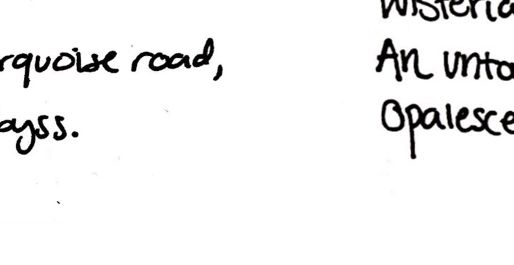 rquoise road,
byss.
Wisteria
An unto
Opalesce